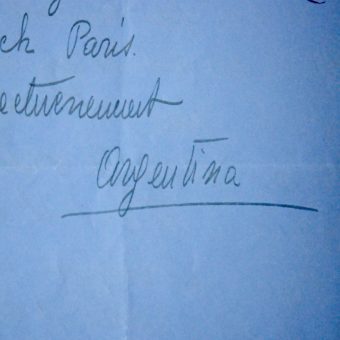 ck Paris.
ectueusement
Argentina